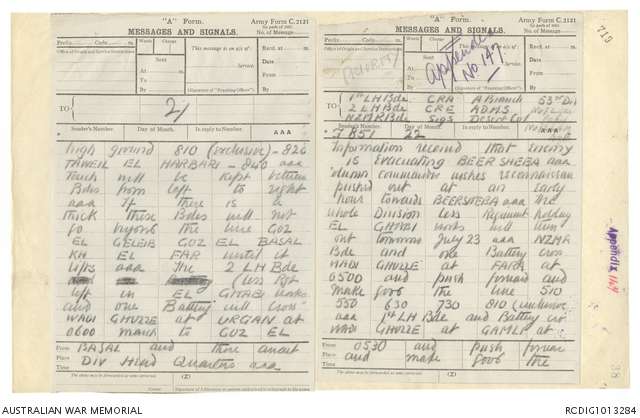 "A" Form.
Army Form C. 2121
MESSAGES AND SIGNALS.
No. of Message
Prefix Code m.
Words Charge
This message is on a/c of:
Recd. at m.
Office of Origin and Service Instructions
Sent
Date
At m.
Service.
From
To
By
(Signature of "Franking Officer")
By
TO
2/
Sender's Number.
Day of Month.
In reply to Number.
AAA
high ground 810 (exclusive) - 820
TAWEIL EL HARBARI - 840 aaa
Touch will be kept between
Bdes from left to right
aaa If there is a
thick these Bdes will not
go beyond the line GOZ
EL GELEIB GOZ EL BASAL
KH EL FAR until it
lifts aaa The 2 LH Bde
(less Rgt
left in EL GHABI works
and one Battery will cross
WADI GHUZZE at URGAN at
0600 march to GOZ EL
From BASAL and there await
Place DIV Head Quarters aaa
Time
The above may be forwarded as now corrected.
(Z)
"A" Form.
Army Form C. 2121
MESSAGES AND SIGNALS.
No. of Message
Prefix Code m.
Words Charge
This message is on a/c of:
Recd. at m.
Office of Origin and Service Instructions
Sent
Date
PRIORITY
Appendix
No 147
At m.
Service.
From
To
By
(Signature of "Franking Officer")
By
TO
1st LH Bde CRA A Branch 53rd Div
2 LH Bde CRE ADMS
NZMR Bde Sigs Desert Col
Sender's Number.
Day of Month.
In reply to Number.
AAA
J 857 22
Information received that Enemy
is evacuating BEERSHEBA aaa
Column commander wishes reconnaissance
pushed out at an early
hour towards BEERSHEBA aaa The
whole Division less Regiment holding
EL GHABI works will
out tomorrow July 23 aaa NZMR
Bde and one Battery cross
WADI GHUZZE at FARA at
0500 and push forward and
make good the line 510
550 630 730 810 (inclusive
aaa 1st LH Bde and Battery
WADI GHUZZE at GAMLI at
From 0530 and push forward
Place and make good the
Time
The above may be forwarded as now corrected.
(Z)
719
Appendix 147
38
AUSTRALIAN WAR MEMORIAL
RCDIG1013284